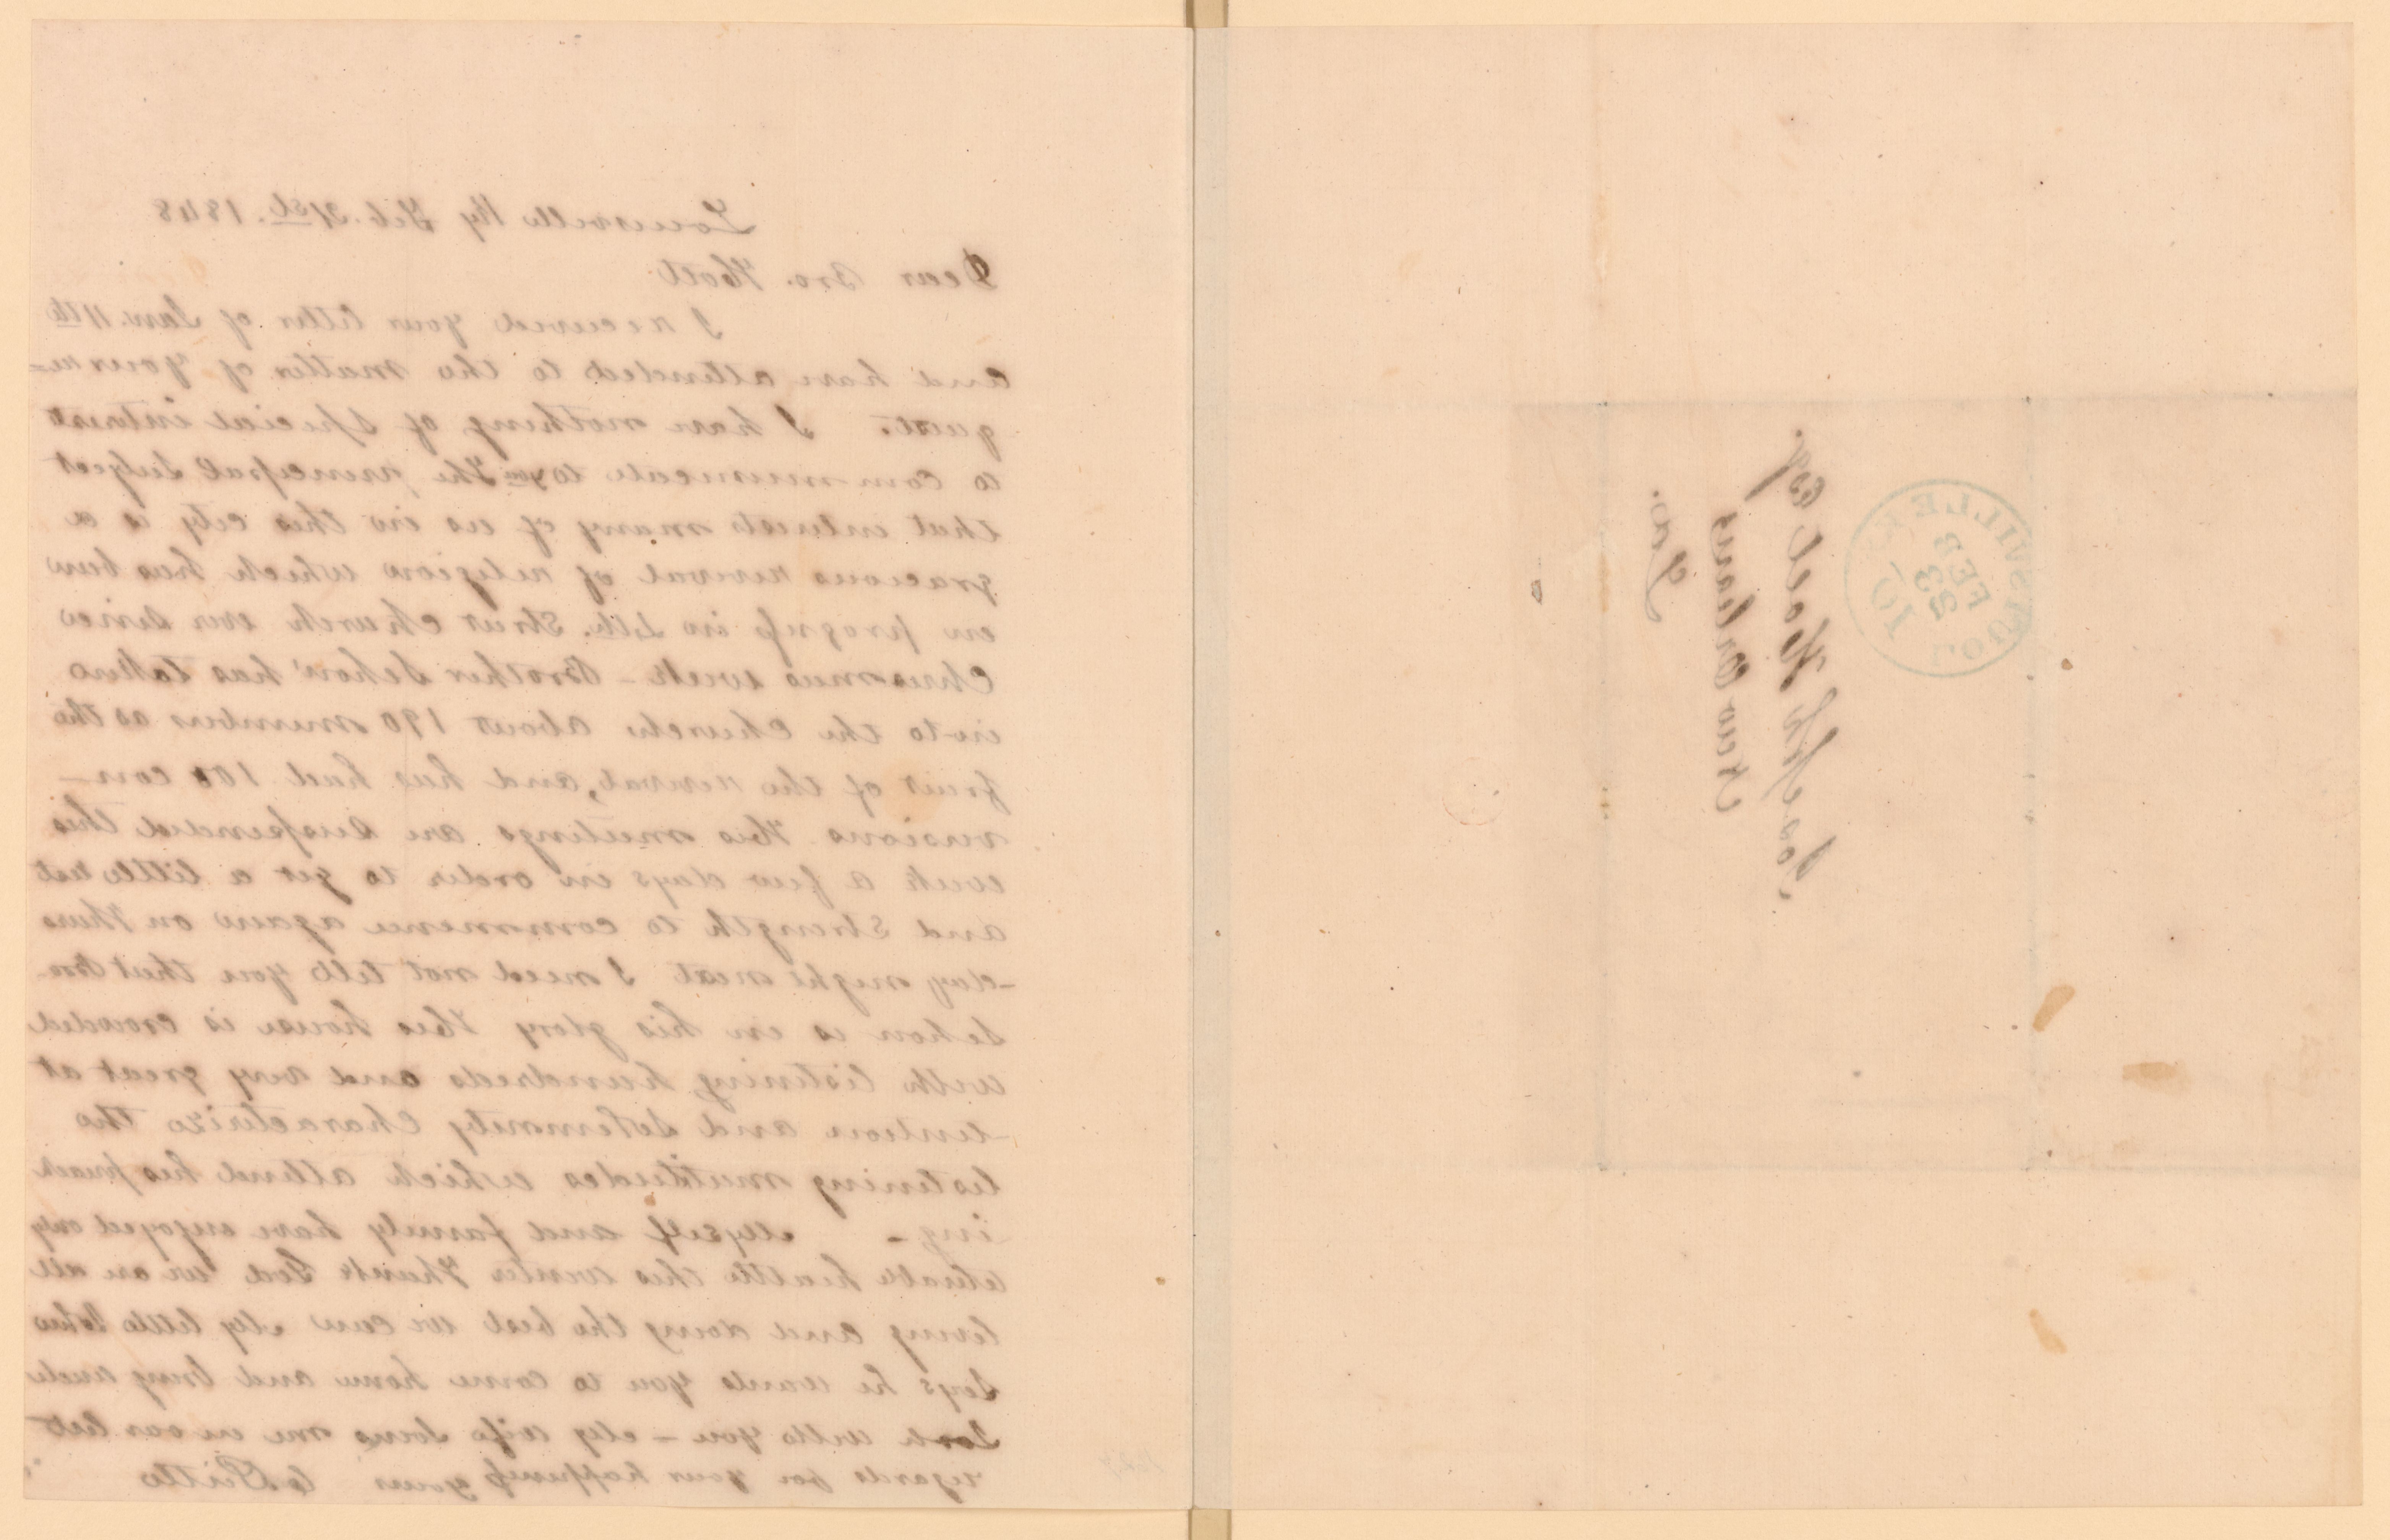 Louisville Ky Feb. 21st. 1848
Dear Bro. Holt
I received your letter of Jan. 11th
and have attended to the matter of your re=
quest. I have nothing of special interest
to communicate to you The principal subject
that interests many of us in this city is a
gracious revival of religion which has been
in progress in 4th. Street Church ever since
Chrismas week - Brother Sehon has taken
into the Church about 190 members as the
fruit of the revival, and has had 100 con-
versions His meetings are suspended this
week a few days in order to get a little rest
and strength to commence again on Thurs
-day night next I need not tell you that Bro
Sehon is in his glory His house is crowded
with listening hundreds and very great at
-tention and solemnity characterize the
listening multitudes which attend his preach
ing - Myself and family have enjoyed
health this winter Thank God we are all
living and doing the best we can My little
says he wants you to come home and bring
with you - My wife joins me in our best
regards for your happiness yours
LOUISVILLE KY.
FEB
23
10
Joseph Holt Esq.
New Orleans
Lou.